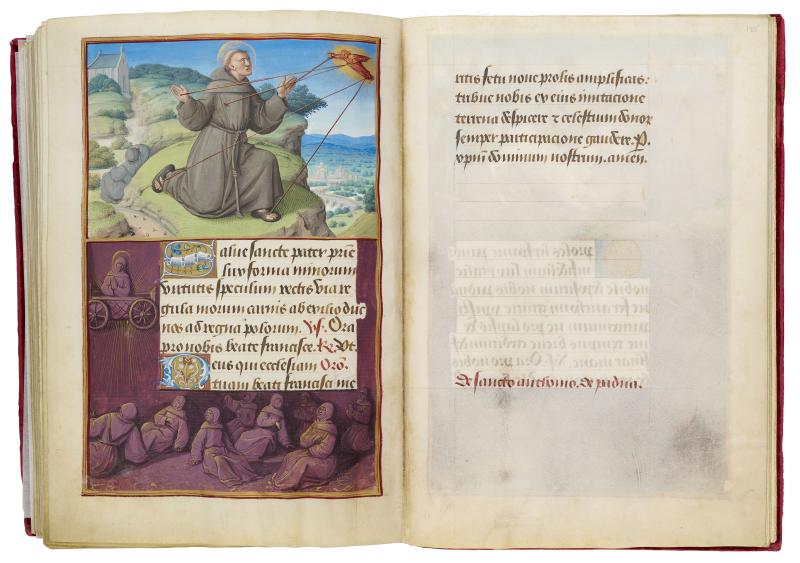 Salue sancte pater prie
lux forma minorum
virtutis speculum recti via re
gula morum carnis ab exilio duc
nos ad regna polorum. Vs. Ora
pro nobis beate francisce. Re. Vt.
Deus qui ecclesiam Oro.
tuam beati francisci me
ritis fetu noue prolis amplificas:
tribue nobis ex eius imitacione
terrena despicere & celestium donor
semper participacione gaudere. P.
xpm dominum nostrum. amen.
De sancto anthonio. de padua.